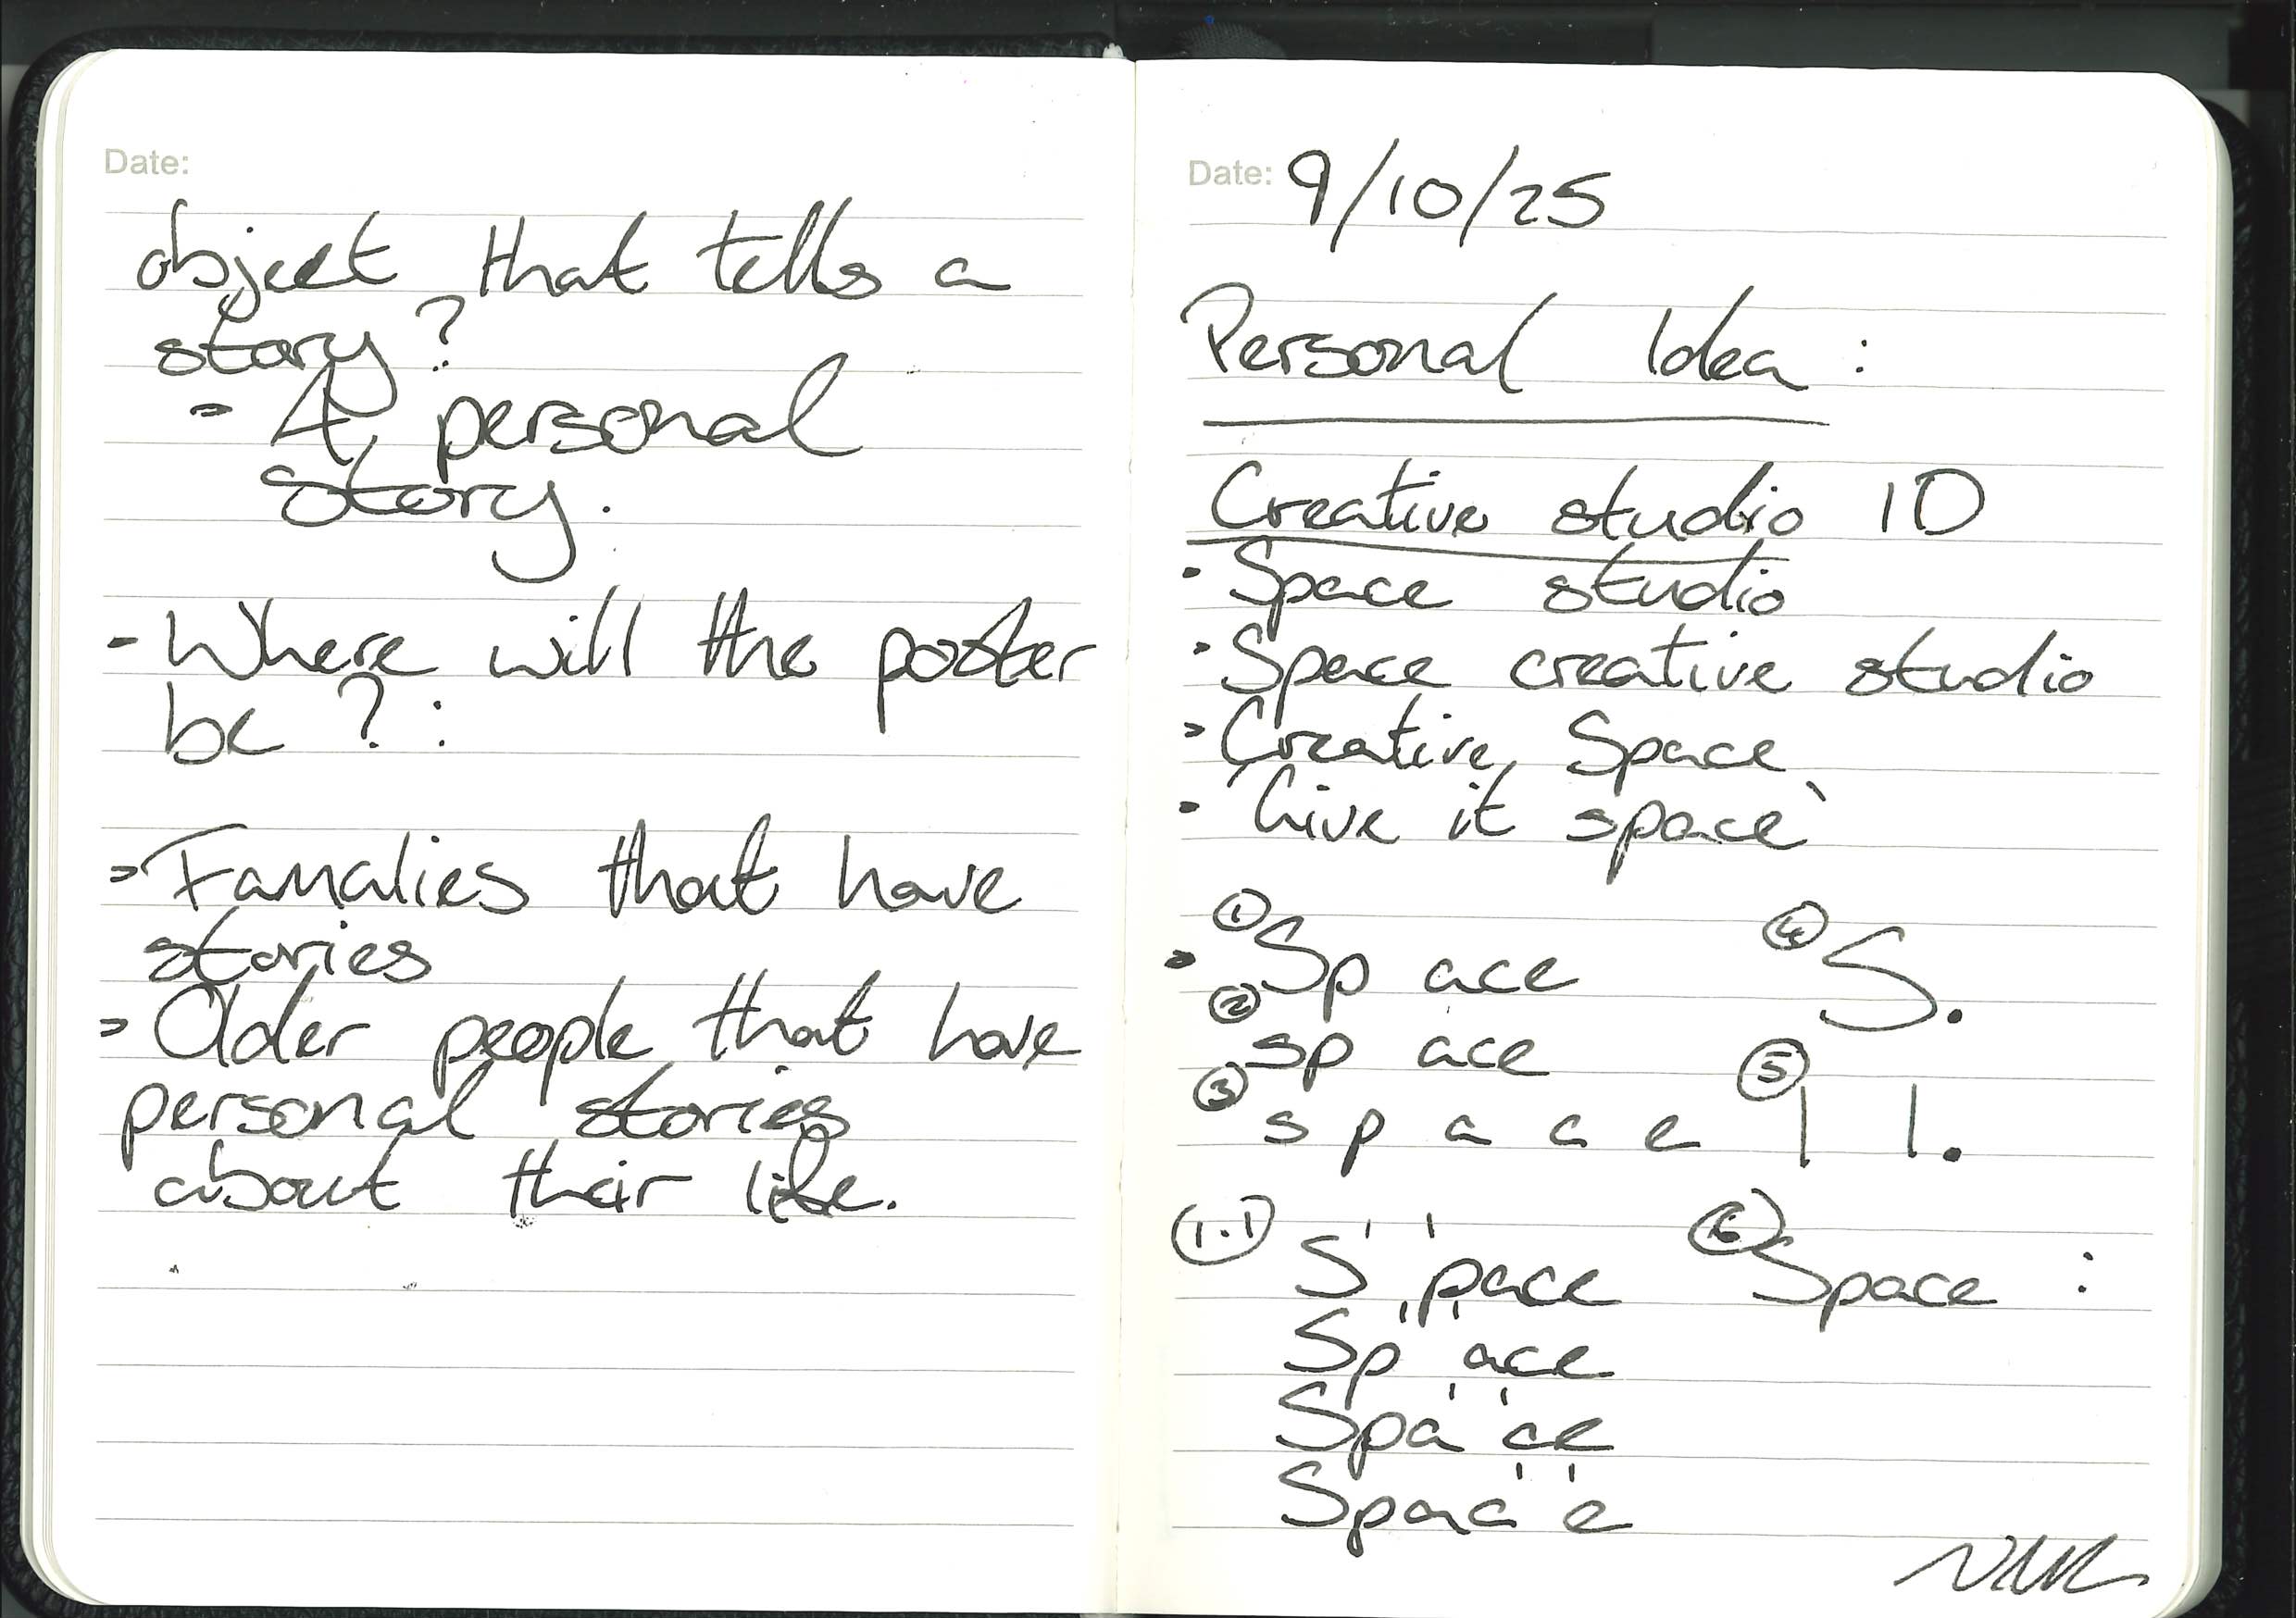 Date:
object that tells a
story?
- A personal
story.
- Where will the poster
be?:
- Famalies that have
stories
- Older people that have
personal stories
about their life.
Date: 9/10/25
Personal Idea:
Creative studio ID
• Space studio
• Space creative studio
• Creative Space
• 'Give it space'
① Sp ace
② sp ace
③ s p a c e
④ S.
⑤ | |.
(1.1) S ' ' pace
Sp ' ' ace
Spa ' ' ce
Spac ' ' e
⑥ Space :